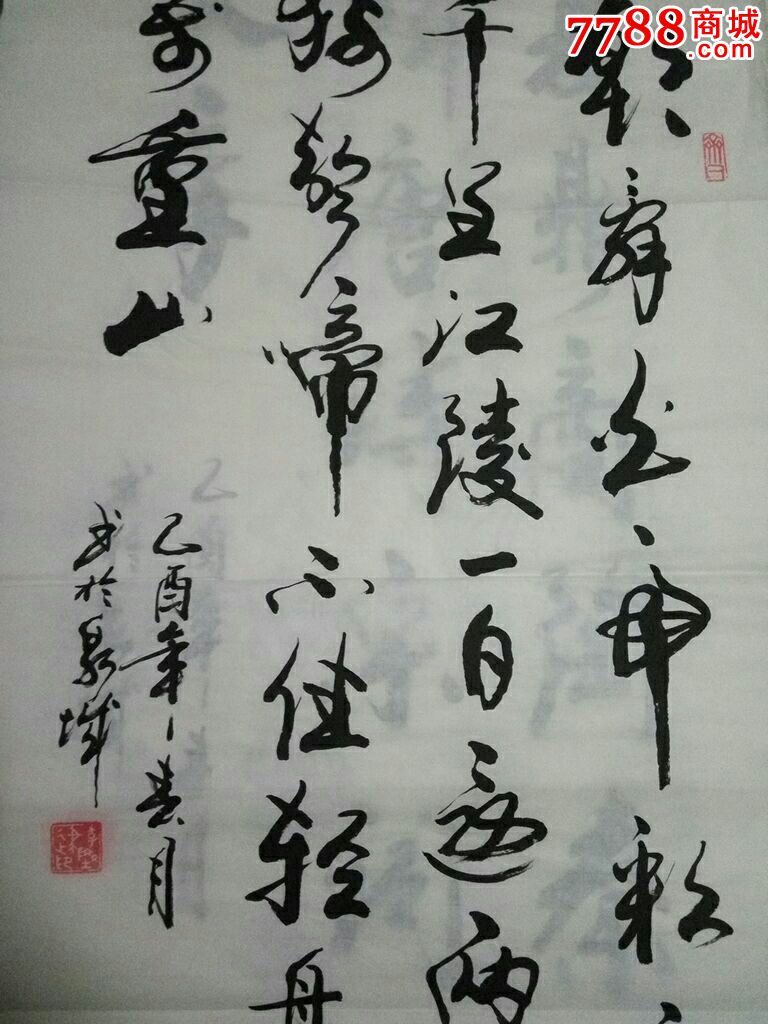 7788商城
.com
朝辞白帝彩
千里江陵一日還兩
猿聲啼不住輕舟
萬重山
乙酉年春月
书於泉城